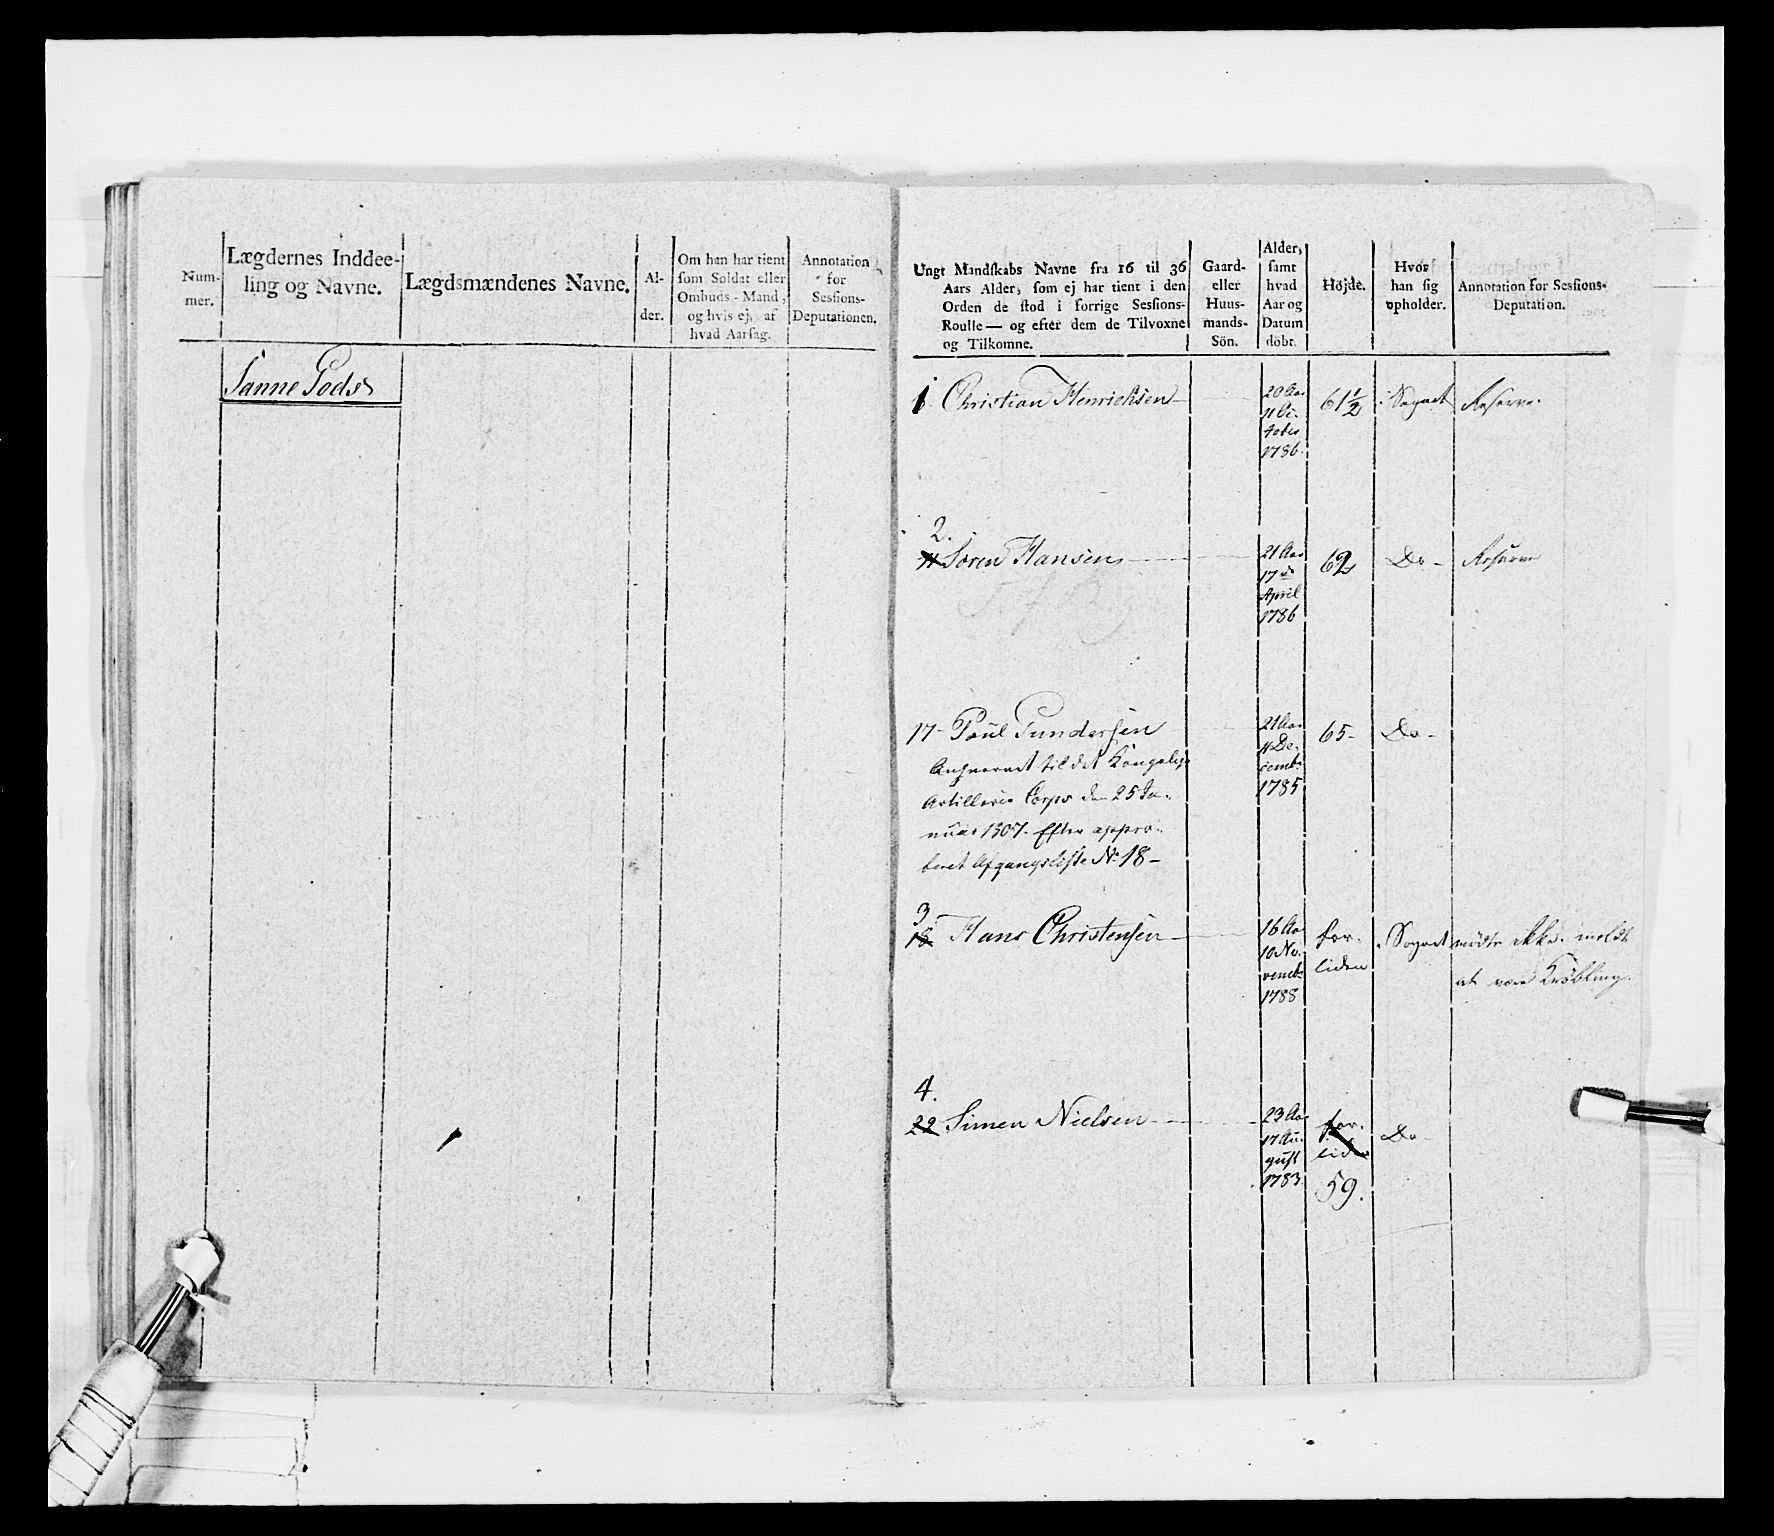 Num-
mer.
Lægdernes Inddee-
ling og Navne.
Lægdsmændenes Navne.
Al-
der.
Om han har tient
som Soldat eller
Ombuds-Mand,
og hvis ej, af
hvad Aarsag.
Annotation
for
Sessions-
Deputationen.
Sanne Gods
Ungt Mandskabs Navne fra 16 til 36
Aars Alder, som ej har tient i den
Orden de stod i forrige Sessions-
Roulle — og efter dem de Tilvoxne
og Tilkomne.
Gaard-
eller
Huus-
mands-
Sön.
Alder,
samt
hvad
Aar og
Datum
döbt.
Höjde.
Hvor
han sig
opholder.
Annotation for Sessions-
Deputation.
1 Christian Henrichsen
20 Aar
11 Oc-
tober
1786.
61 1/2
i Sognet
Reserve.
2.
11 Soren Hansen
21 Aar
17de
April
1786
62
Do
Reserve
17 Poul Gundersen
Anhvervet til det Kongelige
Artillerie Corps den 25 Ja-
nuar 1807. Efter appro-
beret Afgangsliste No 18
21 Aar
11 De-
cembr
1785
65
Do
3.
18 Hans Christensen
16 Aar
10 No-
vembr
1788
for-
liden
i Sognet
mödte ikke. meldt
at være Kröbling.
4.
22 Simen Nielsen
23 Aar
17 Au-
gust
1783
for-
liden
59.
Do